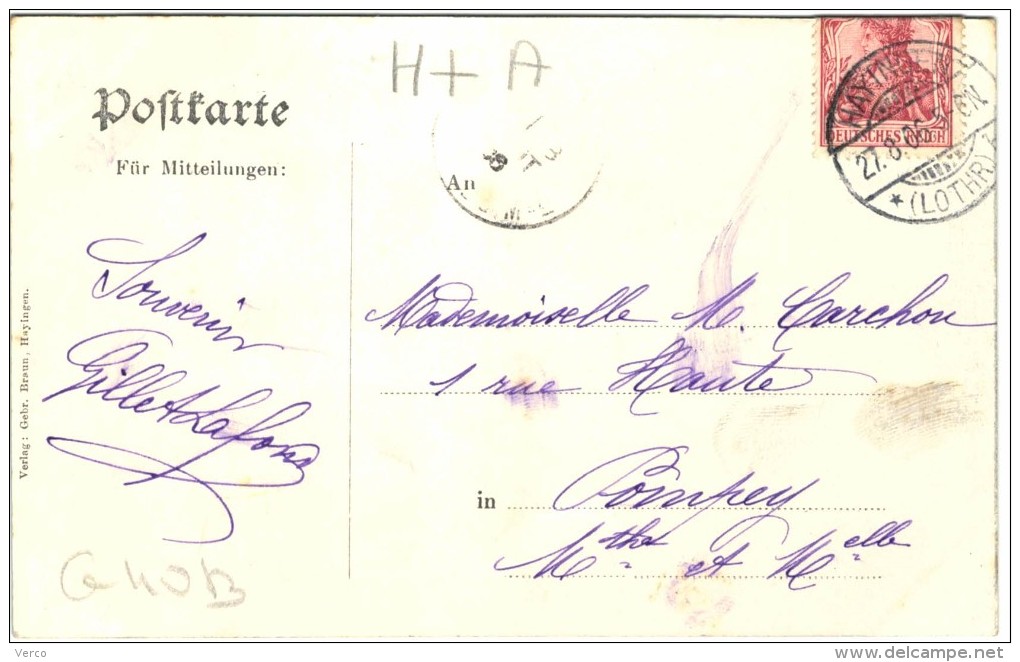 H + A
Postkarte
Für Mitteilungen:
DEUTSCHES REICH
HAYINGEN
27.8.06
★ (LOTHR) ★
An
Souvenir
Gillet Lafond
Mademoiselle M. Carchon
1 rue Haute
in Pompey
Mthe et Melle
Verlag: Gebr. Braun, Hayingen.
Verco
delcampe.net